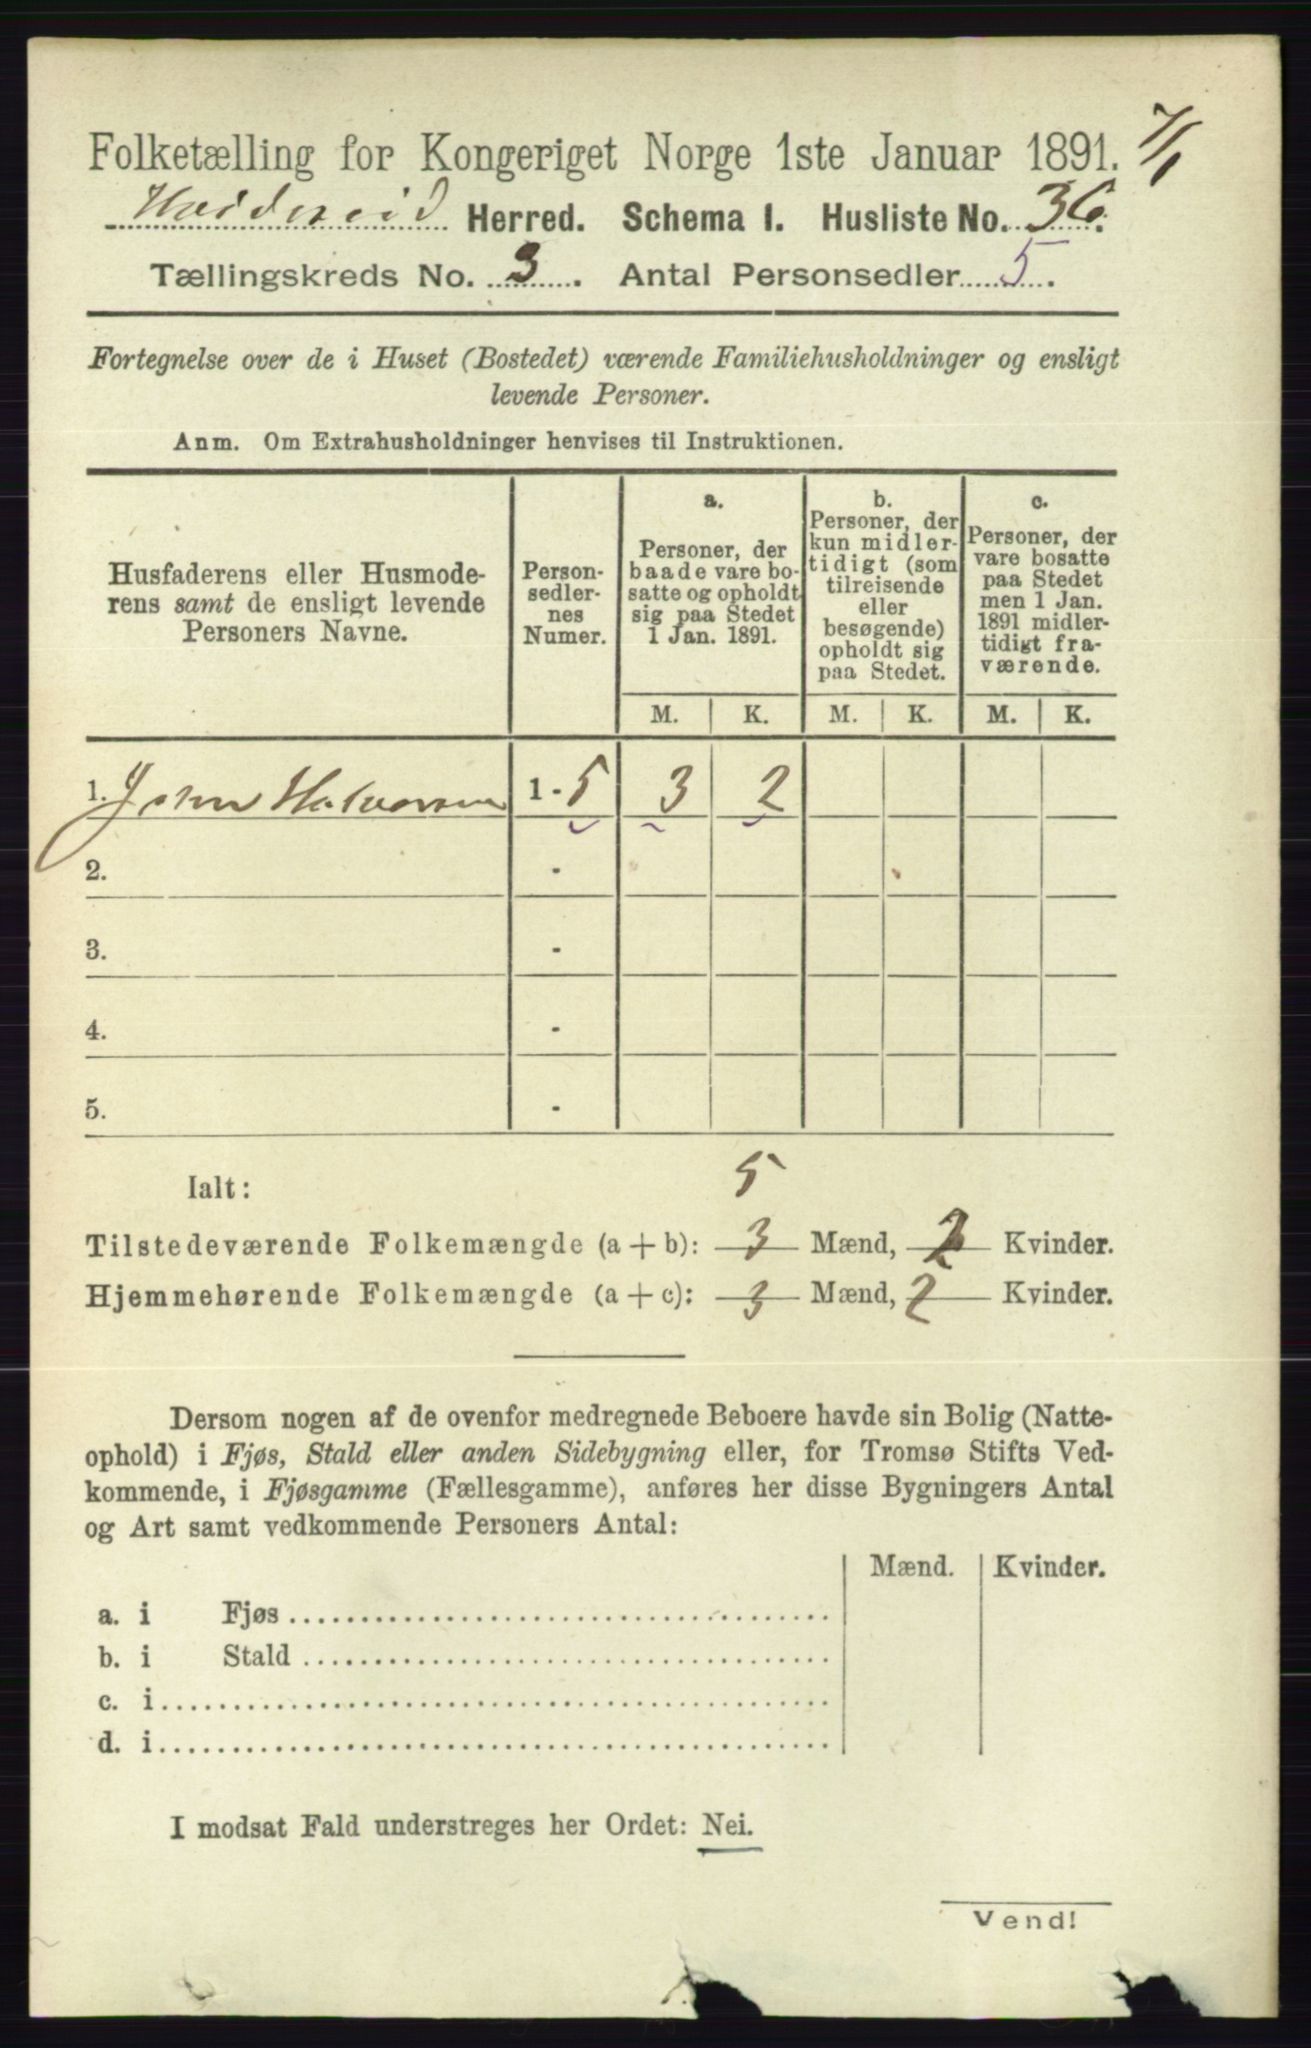 Folketælling for Kongeriget Norge 1ste Januar 1891. 7/1
Hvideseid Herred. Schema 1. Husliste No. 36.
Tællingskreds No. 3. Antal Personsedler 5.
Fortegnelse over de i Huset (Bostedet) værende Familiehusholdninger og ensligt
levende Personer.
Anm. Om Extrahusholdninger henvises til Instruktionen.
Husfaderens eller Husmode-
rens samt de ensligt levende
Personers Navne.
Person-
sedler-
nes
Numer.
a.
Personer, der
baade vare bo-
satte og opholdt
sig paa Stedet
1 Jan. 1891.
b.
Personer, der
kun midler-
tidigt (som
tilreisende
eller
besøgende)
opholdt sig
paa Stedet.
c.
Personer, der
vare bosatte
paa Stedet
men 1 Jan.
1891 midler-
tidigt fra-
værende.
M. K. M. K. M. K.
1. John Halvorsen 1 - 5 3 2
2. -
3. -
4. -
5. -
Ialt: 5
Tilstedeværende Folkemængde (a + b): 3 Mænd, 2 Kvinder.
Hjemmehørende Folkemængde (a + c): 3 Mænd, 2 Kvinder.
Dersom nogen af de ovenfor medregnede Beboere havde sin Bolig (Natte-
ophold) i Fjøs, Stald eller anden Sidebygning eller, for Tromsø Stifts Ved-
kommende, i Fjøsgamme (Fællesgamme), anføres her disse Bygningers Antal
og Art samt vedkommende Personers Antal:
Mænd. Kvinder.
a. i Fjøs
b. i Stald
c. i
d. i
I modsat Fald understreges her Ordet: Nei.
Vend!